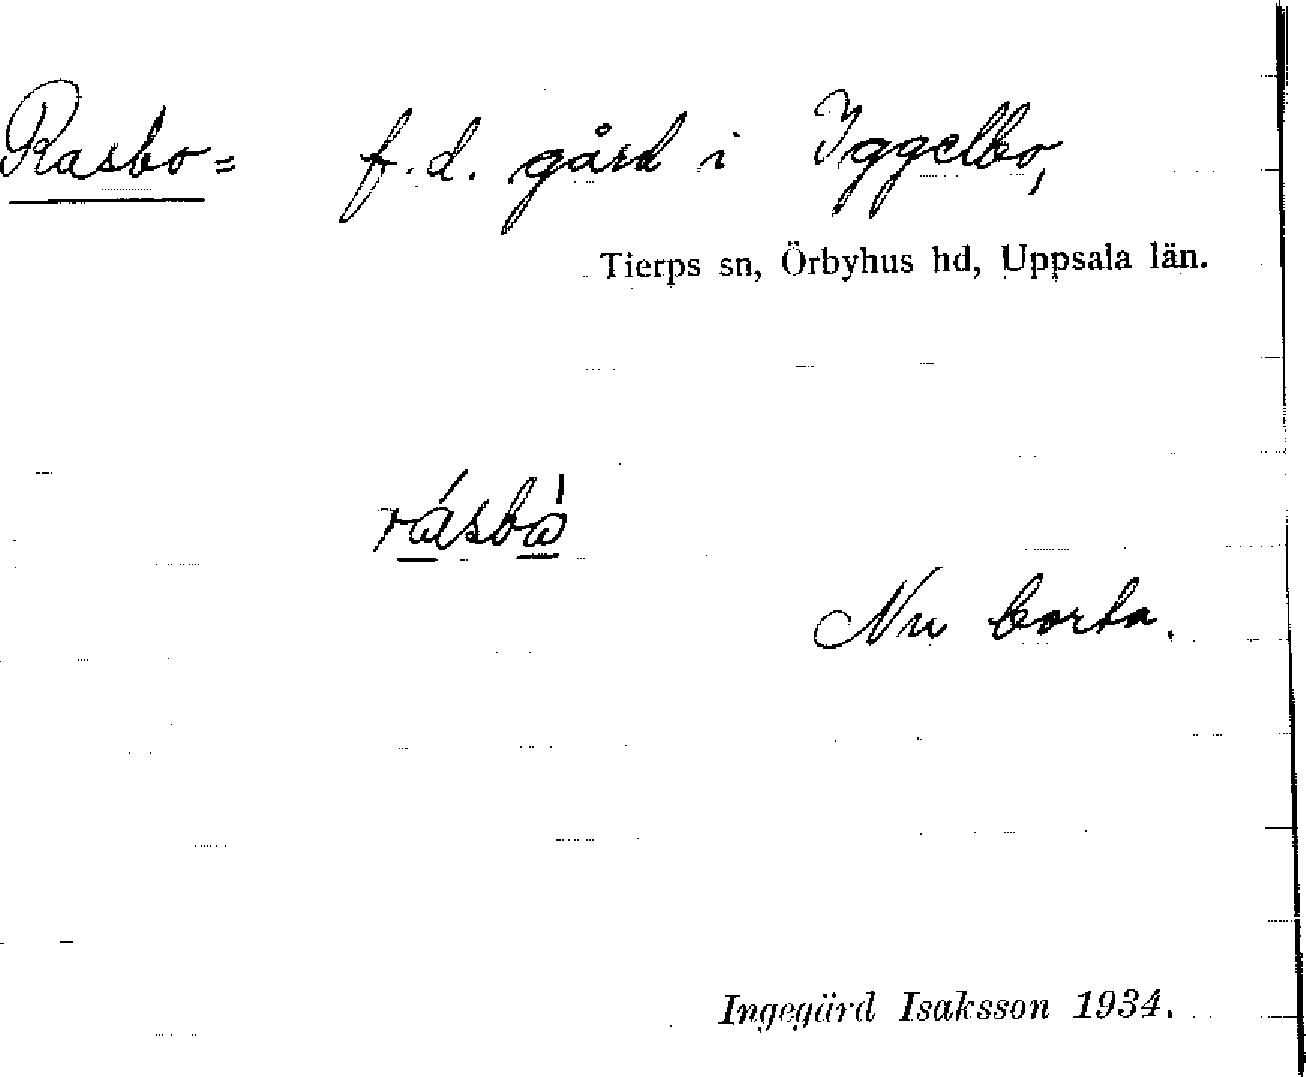 Rasbo= f.d. gård i Iggelbo,
Tierps sn, Örbyhus hd, Uppsala län.
Nu borta.
Ingegärd Isaksson 1934.